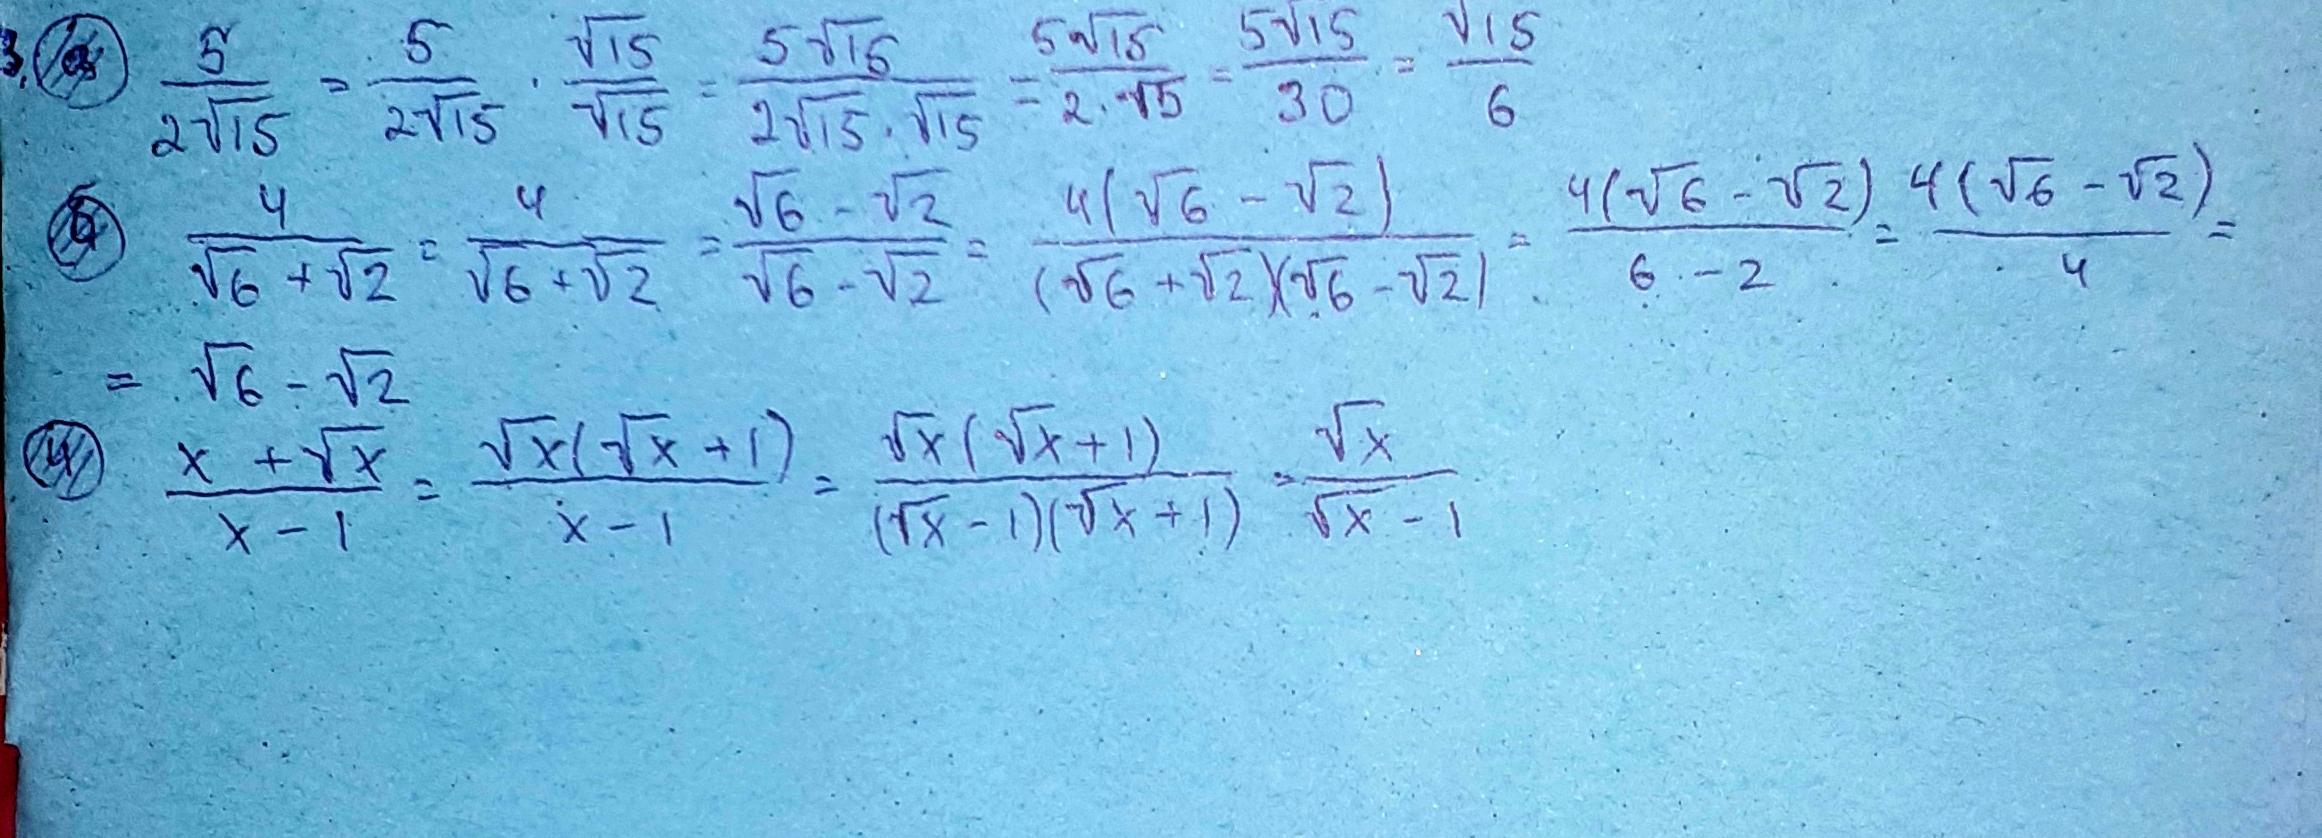 3. а) 5/(2√15) = 5/(2√15) · √15/√15 = 5√15/(2√15·√15) = 5√15/(2·15) = 5√15/30 = √15/6
4/(√6+√2) = 4/(√6+√2) = (√6-√2)/(√6-√2) = 4(√6-√2)/((√6+√2)(√6-√2)) = 4(√6-√2)/(6-2) = 4(√6-√2)/4 =
= √6-√2
4) (x+√x)/(x-1) = √x(√x+1)/(x-1) = √x(√x+1)/((√x-1)(√x+1)) = √x/(√x-1)